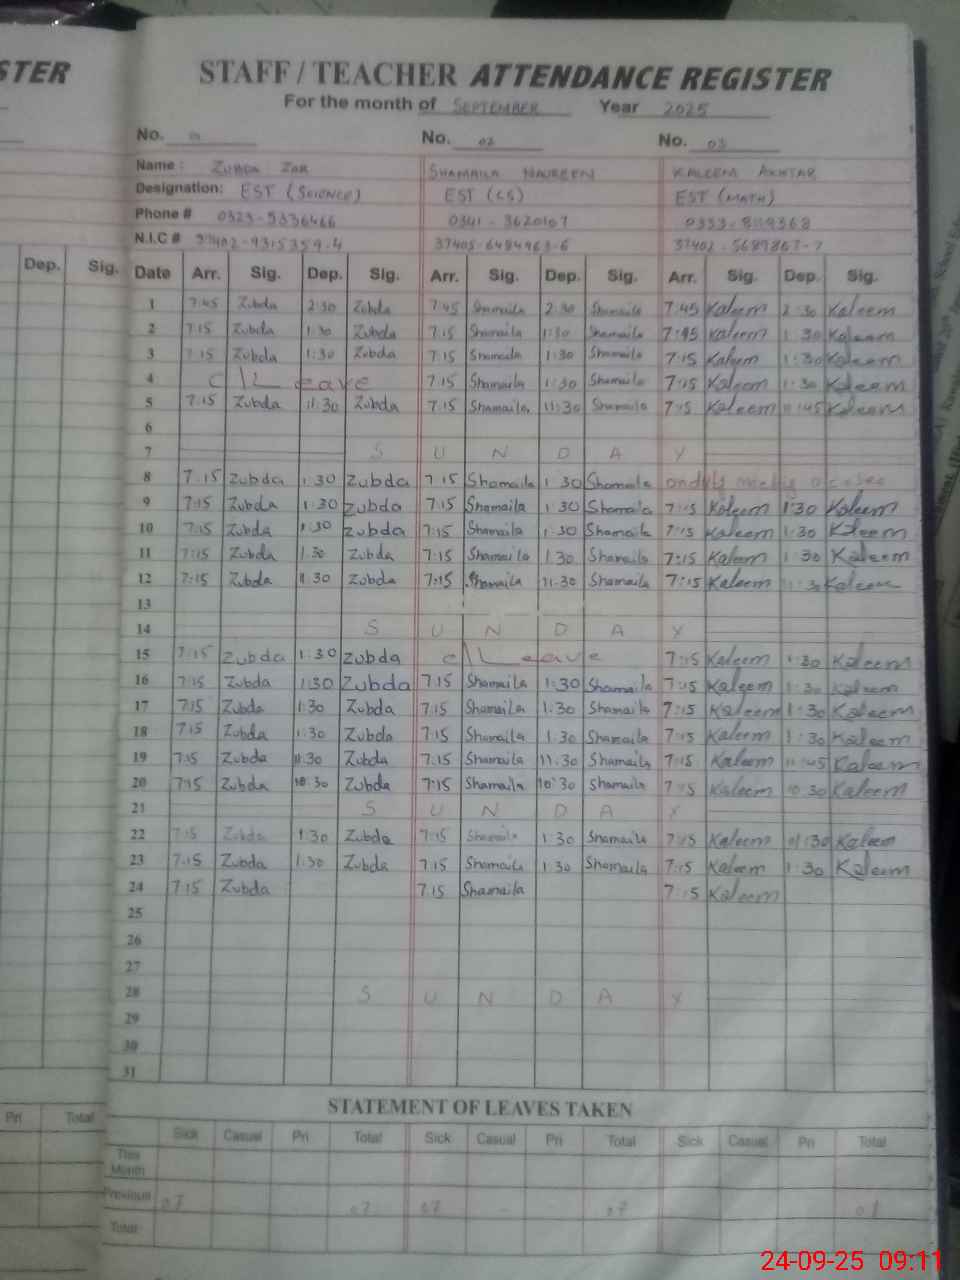 STER
STAFF / TEACHER ATTENDANCE REGISTER
For the month of SEPTEMBER Year 2025
No. 01 No. 02 No. 03
Name : ZUBDA ZAR SHAMAILA NAUREEN KALEEM AKHTAR
Designation: EST (SCIENCE) EST (CS) EST (MATH)
Phone # 0323-5336466 0341-3620167
N.I.C #
Dep. Sig. Date Arr. Sig. Dep. Sig. Arr. Sig. Dep. Sig. Arr. Sig. Dep. Sig.
1 7:45 Zubda 2:30 Zubda 7:45 Shamaila 2:30 Shamaila 7:45 Kaleem 2:30 Kaleem
2 7:15 Zubda 1:30 Zubda 7:15 Shamaila 1:30 Shamaila 7:45 Kaleem 1:30 Kaleem
3 7:15 Zubda 1:30 Zubda 7:15 Shamaila 1:30 Shamaila 7:15 Kaleem 1:30 Kaleem
4 C/Leave 7:15 Shamaila 1:30 Shamaila 7:15 Kaleem 1:30 Kaleem
5 7:15 Zubda 11:30 Zubda 7:15 Shamaila 11:30 Shamaila 7:15 Kaleem 11:45 Kaleem
6
7 S U N D A Y
8 7:15 Zubda 1:30 Zubda 7:15 Shamaila 1:30 Shamaila
9 7:15 Zubda 1:30 Zubda 7:15 Shamaila 1:30 Shamaila 7:15 Kaleem 1:30 Kaleem
10 7:15 Zubda 1:30 Zubda 7:15 Shamaila 1:30 Shamaila 7:15 Kaleem 1:30 Kaleem
11 7:15 Zubda 1:30 Zubda 7:15 Shamaila 1:30 Shamaila 7:15 Kaleem 1:30 Kaleem
12 7:15 Zubda 11:30 Zubda 7:15 Shamaila 11:30 Shamaila 7:15 Kaleem 11:30 Kaleem
13
14 S U N D A Y
15 7:15 Zubda 1:30 Zubda C/Leave 7:15 Kaleem 1:30 Kaleem
16 7:15 Zubda 1:30 Zubda 7:15 Shamaila 1:30 Shamaila 7:15 Kaleem 1:30 Kaleem
17 7:15 Zubda 1:30 Zubda 7:15 Shamaila 1:30 Shamaila 7:15 Kaleem 1:30 Kaleem
18 7:15 Zubda 1:30 Zubda 7:15 Shamaila 1:30 Shamaila 7:15 Kaleem 1:30 Kaleem
19 7:15 Zubda 11:30 Zubda 7:15 Shamaila 11:30 Shamaila 7:15 Kaleem 11:45 Kaleem
20 7:15 Zubda 10:30 Zubda 7:15 Shamaila 10:30 Shamaila 7:15 Kaleem 10:30 Kaleem
21 S U N D A Y
22 7:15 Zubda 1:30 Zubda 7:15 Shamaila 1:30 Shamaila 7:15 Kaleem 01:30 Kaleem
23 7:15 Zubda 1:30 Zubda 7:15 Shamaila 1:30 Shamaila 7:15 Kaleem 1:30 Kaleem
24 7:15 Zubda 7:15 Shamaila 7:15 Kaleem
25
26
27
28 S U N D A Y
29
30
31
STATEMENT OF LEAVES TAKEN
Pri Total Sick Casual Pri Total Sick Casual Pri Total Sick Casual Pri Total
This Month
Previous 07 07 07 07
Total
24-09-25 09:11